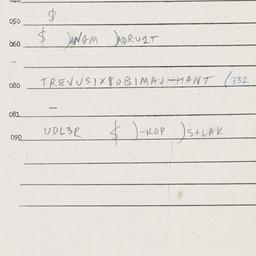 050 $
060 $ )WNAM )NDRU2T
080 TREVUSIX80BIMAJ-HANT (332
081 —
090 UDL3R $ )-KOP )S+LAK